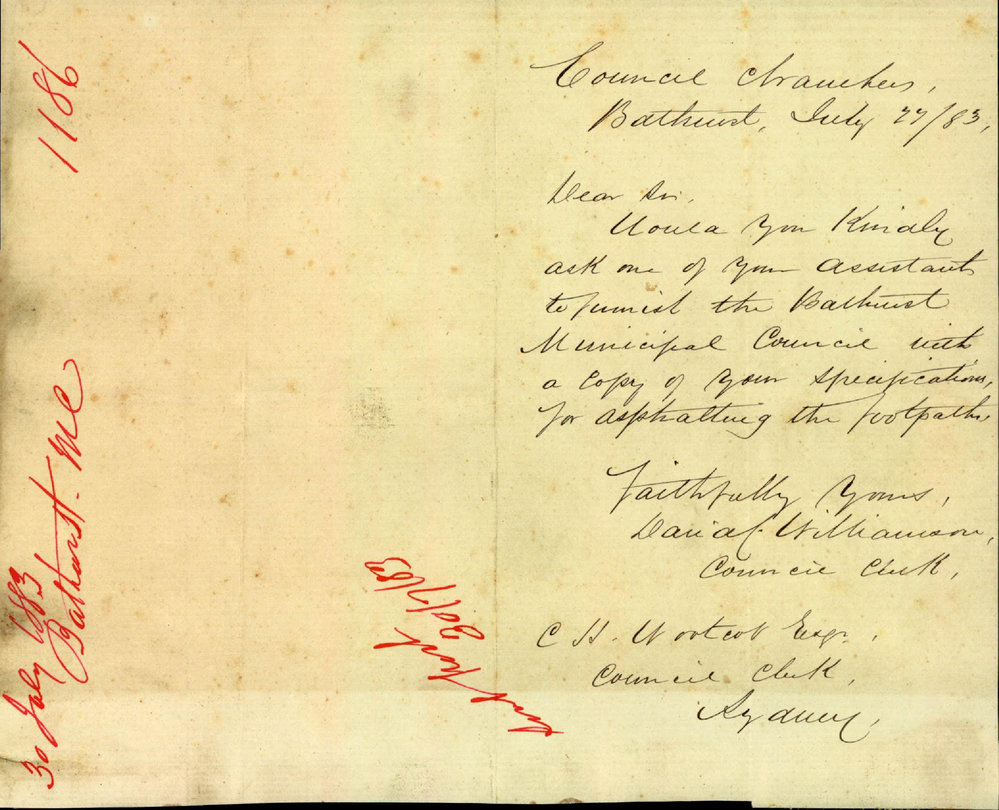 Council Chambers,
Bathurst, July 27/83,
Dear Sir,
Would you Kindly
ask one of your assistants
to furnish the Bathurst
Municipal Council with
a copy of your specifications,
for asphalting the footpaths
Faithfully Yours,
Williamson,
Council Clerk,
C H. Woolcott Esqr.,
Council Clerk,
Sydney,
1186
30 July 1883
Bathurst. MC
30/7/83